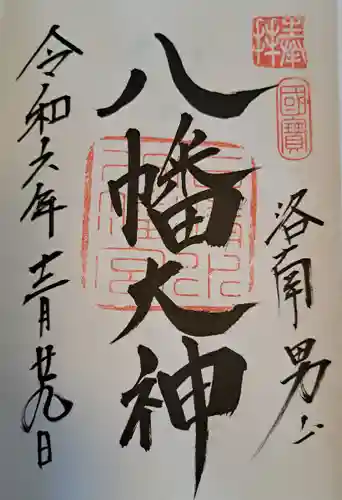 奉拝
國寳
洛南男山
八幡大神
令和六年十二月廿九日